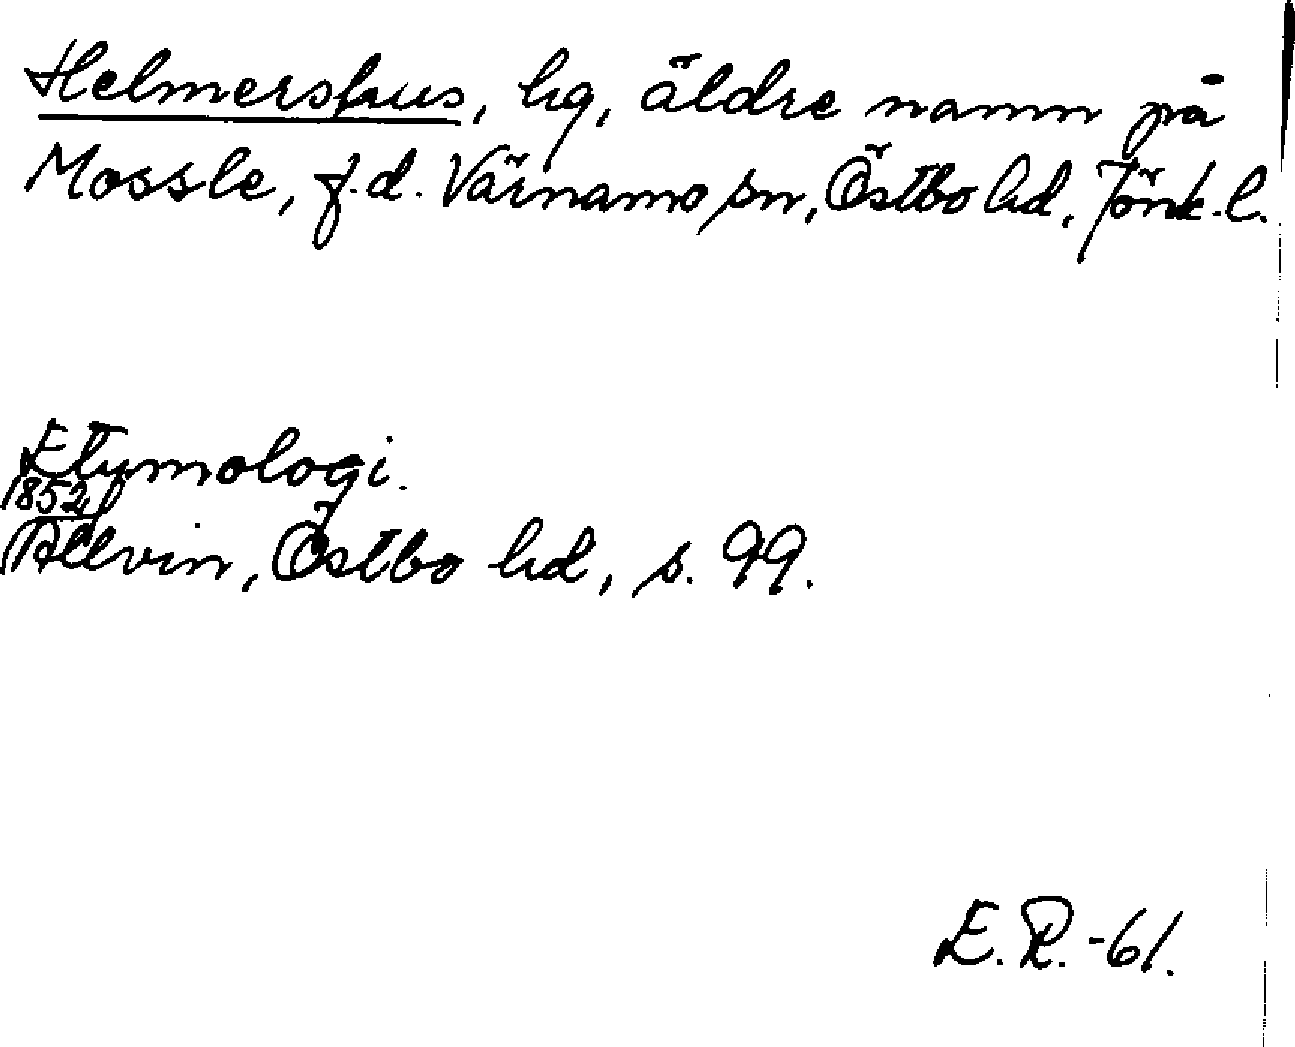 Helmershus, hg, äldre namn på
Mossle, f.d. Värnamo sn, Östbo hd, Jönk. l.
Etymologi.
1852
Allvin, Östbo hd, s. 99.
E. R. -61.